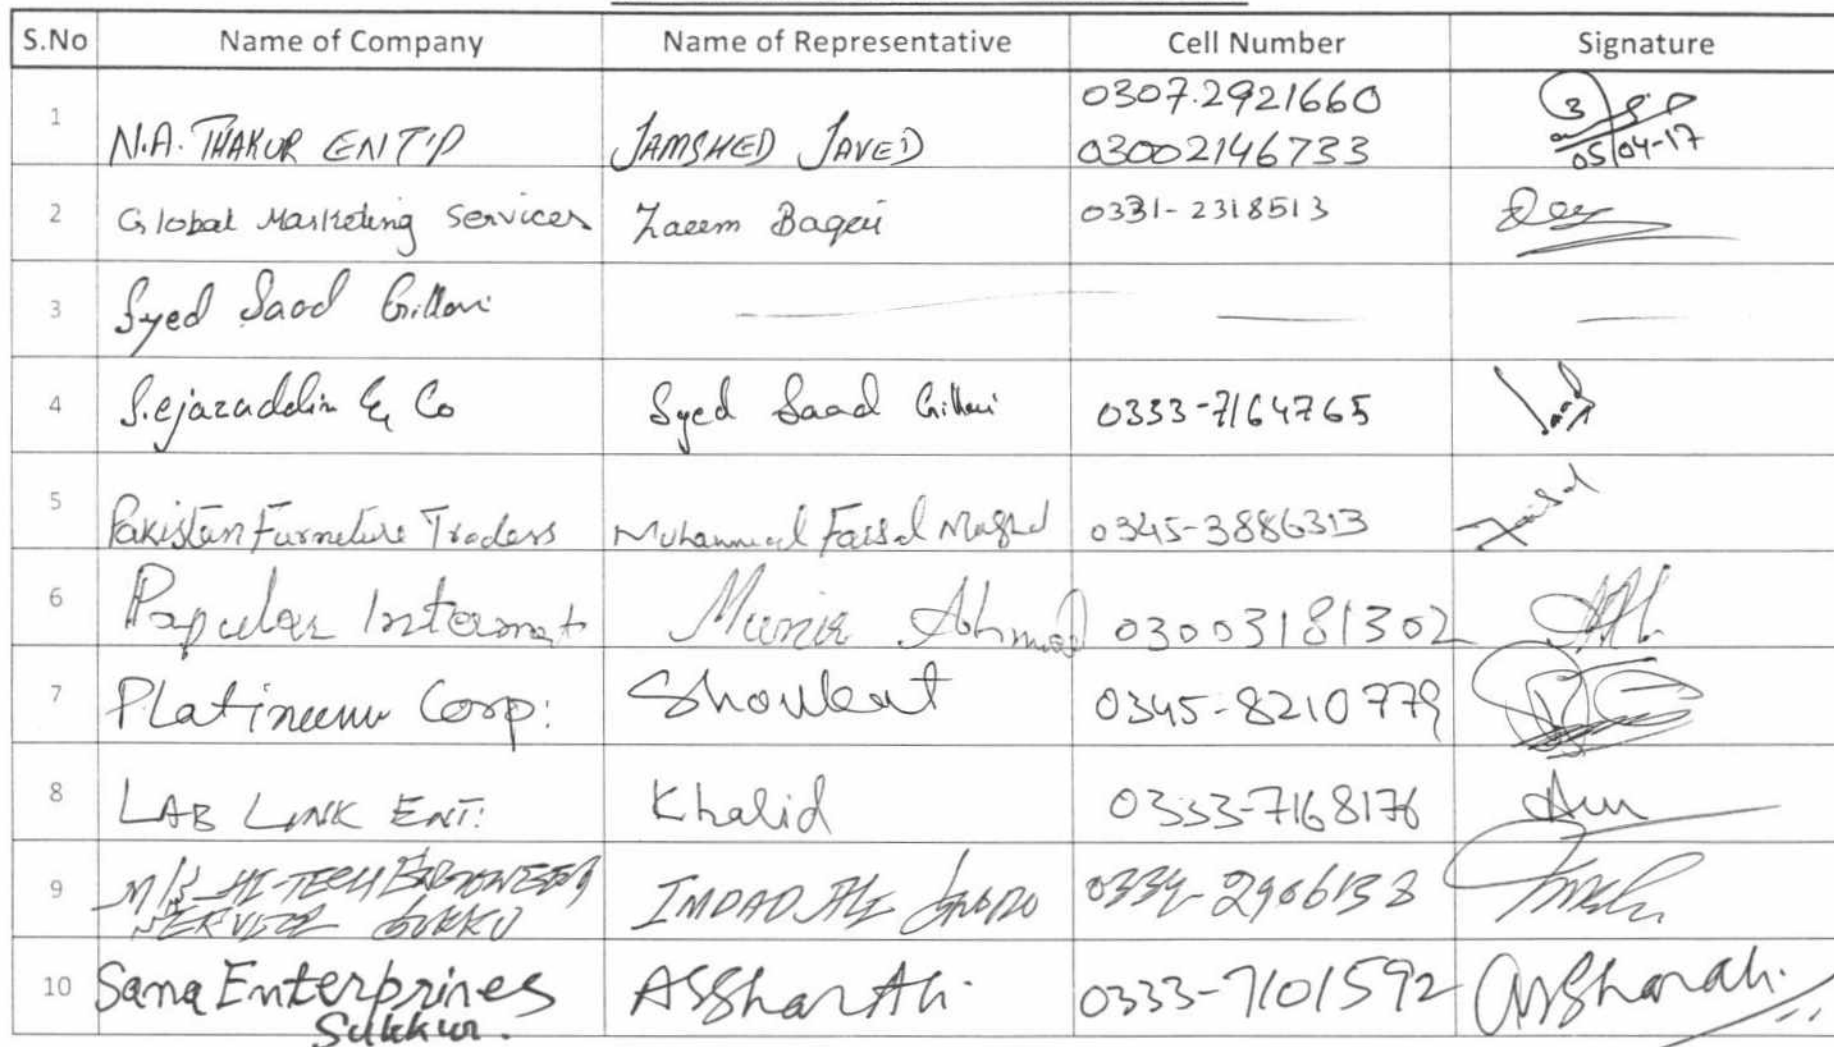 S.No Name of Company Name of Representative Cell Number Signature
1 N.A. THAKUR ENT'P JAMSHED JAVED 0307.2921660
03002146733
05/04-17
2 Global Marketing Services Zaeem Baqri 0331-2318513
3 Syed Saad Gillani
4 S.ejazuddin & Co Syed Saad Gillani 0333-7164765
5 Pakistan Furneture Traders Muhammad Faisal 0345-3886313 Faisal
6 Popular Internat Munir Ahmad 03003181302
7 Platineum Corp: Shoukat 0345-8210779
8 LAB LINK ENT: Khalid 0333-7168176
9 M/S HI-TECH ENGINEERING IMDAD ALI 0334-2906138
SERVICE SUKKU
10 Sana Enterprines Asghar Ali. 0333-7101592 Asgharali.
Sukkur.